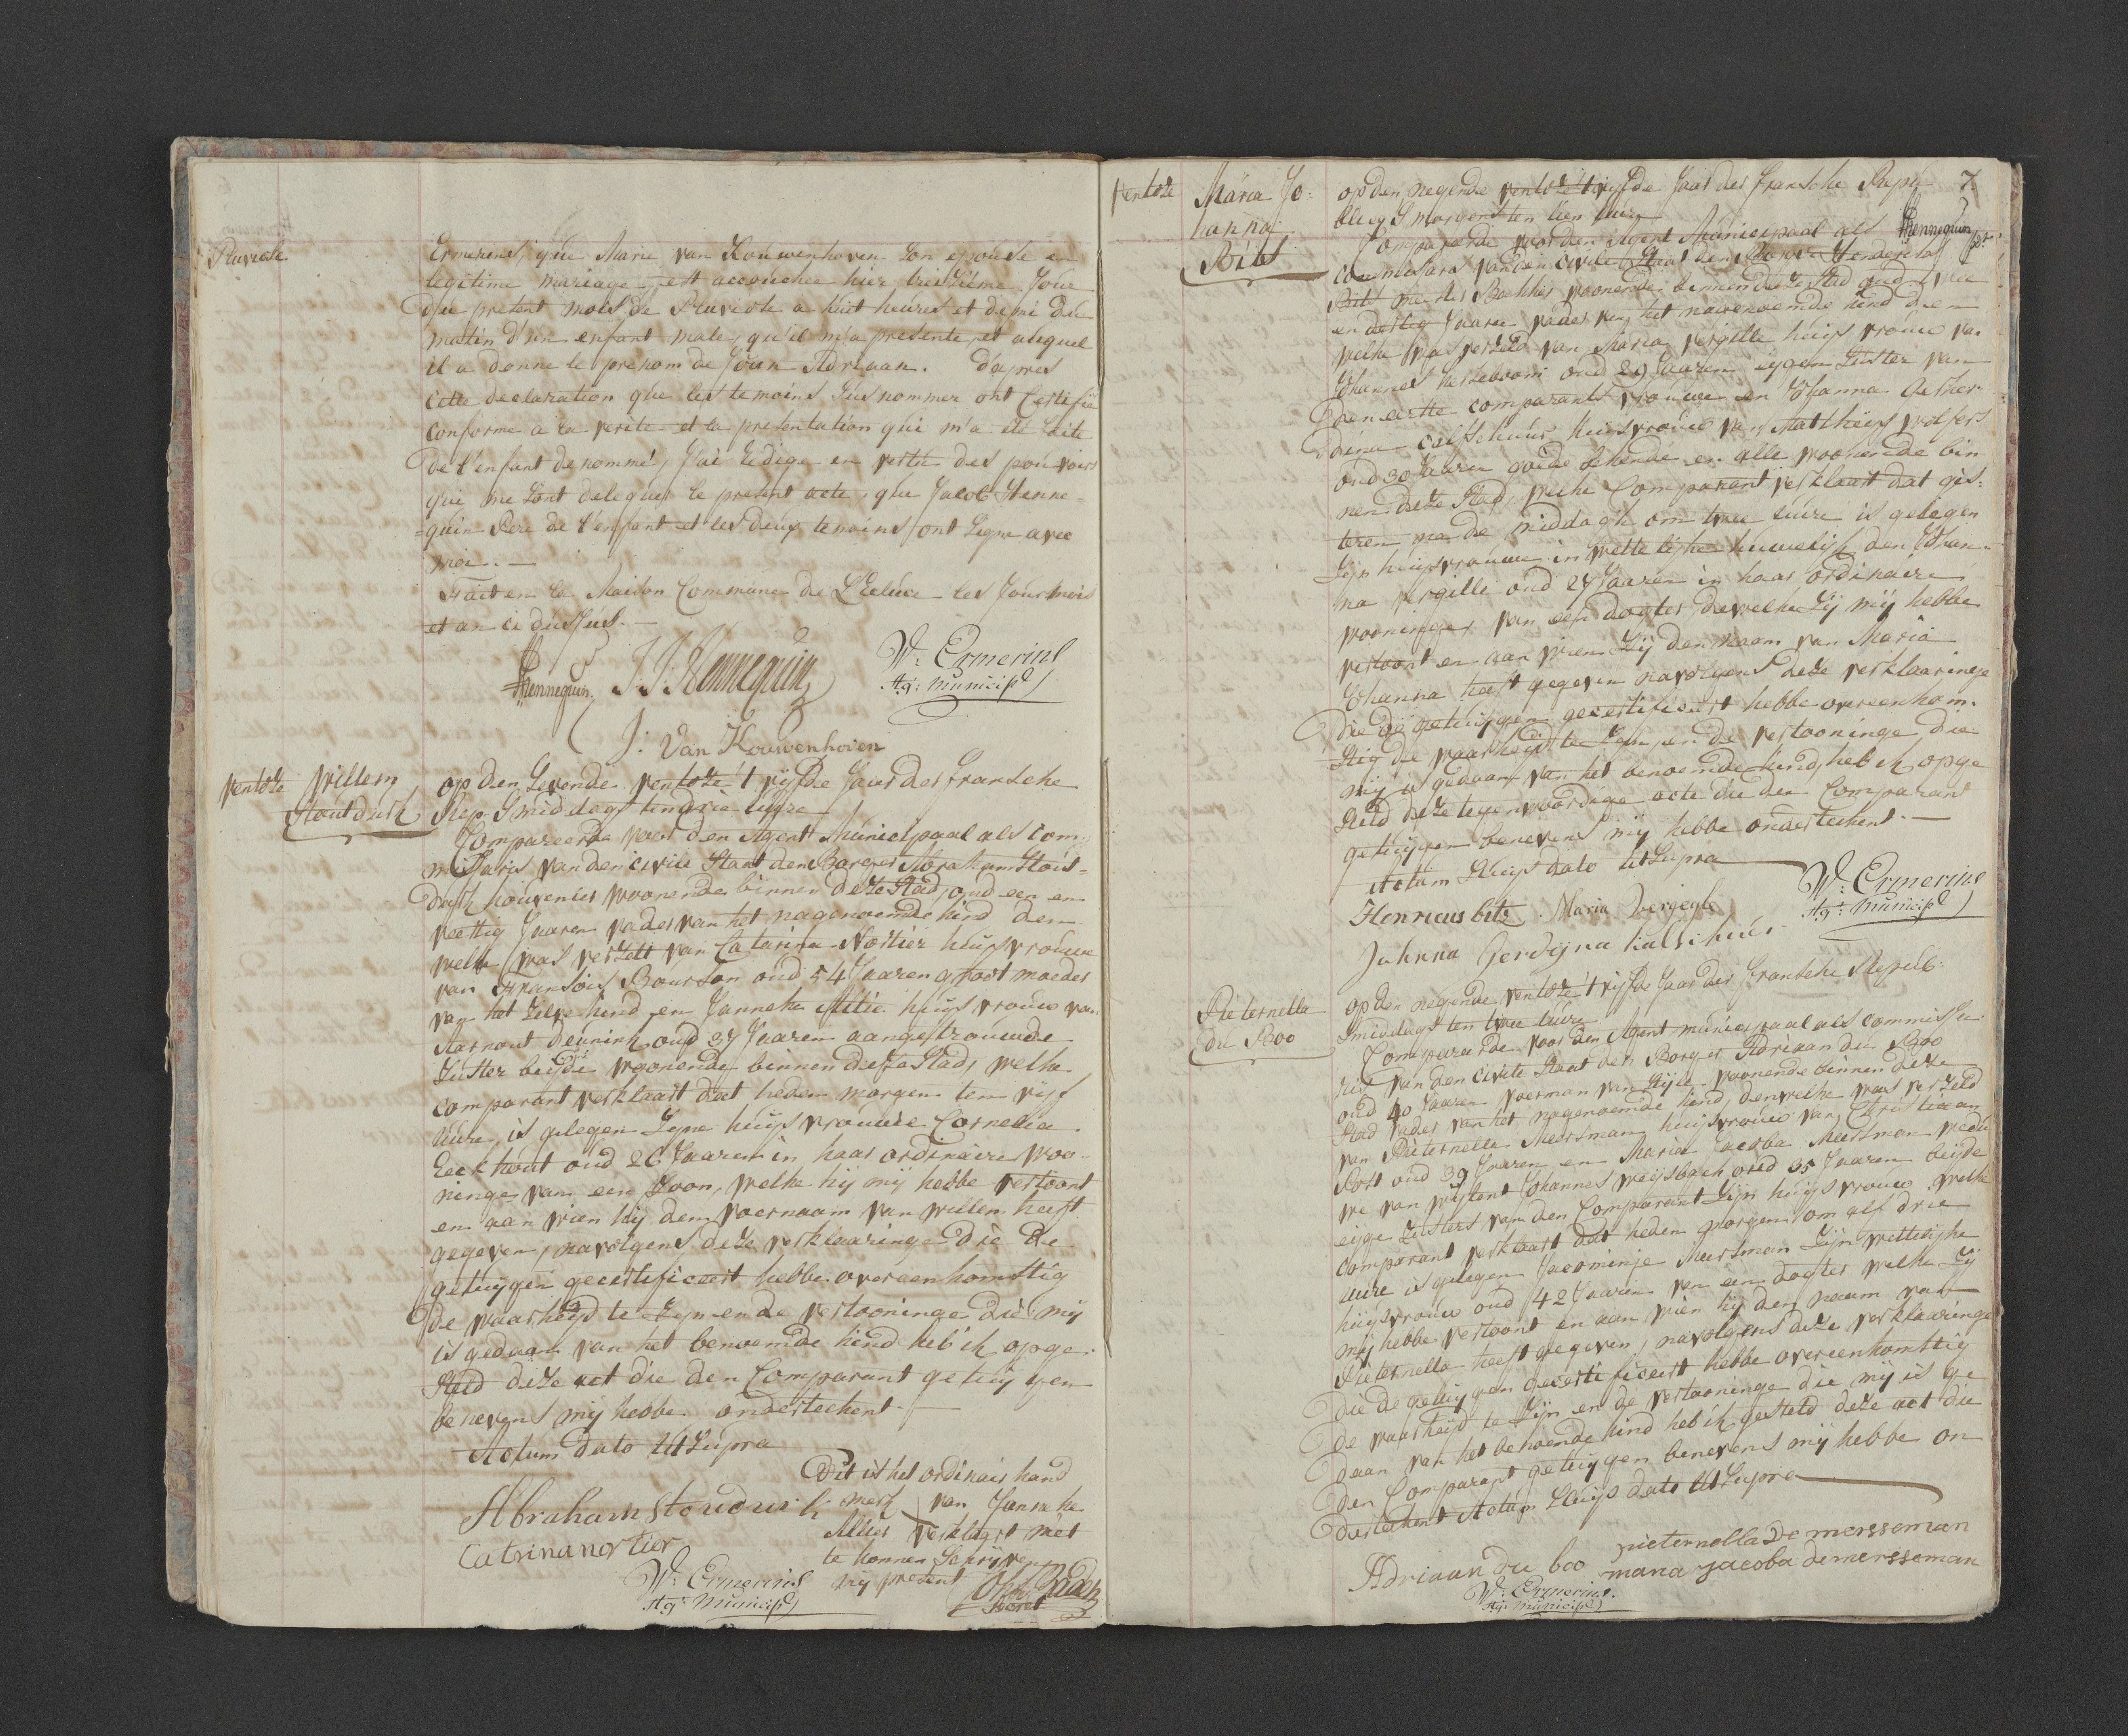 Pluviose
Ermerins, que Marie van Kouwenhoven son epouse en
legitime mariage, est accouchée hier treisième Jour
du present mois de Pluviose a huit heures et demi du
matin d'un enfant male, qu'il m'a presenté, et auquel
il a donné le prenom de Jean Adriaan. D'apres
cette declaration que les temoins susnommer ont Certifié
conforme a la verité et la presentation qui m'a été faite
de l'enfant denommé, J'ai redigé en vertu des pouvoirs
qui me sont delegués le present acte, que Jacob Henne-
=quin Pere de l'enfant et les deux temoins ont signe avec
moi.—
Fait en la Maison Commune de L'Ecluse les Jour mois
et an ci dessus.—
Hennequin. J. J. Hennequin W: Ermerins
Ag: Municipl
J: Van Kouwenhoven
Ventose
Willem
Stoutdusk
op den Sevende ventose 't vijfde Jaar der fransche
Rep. Smiddags ten drie uure
Compareerde voor den Agent Municipaal als Com-
missaris van den civile Staat den Borger Abraham Stou-
dusk hovenier woonende binnen deze Stad, oud een en
veertig Jaaren vader van het nagenoemde kind den
welke was verzelt van Catarina Nortier huijsvrouwe
van Fransois Bourson oud 54 Jaaren groot moeder
van het zelve kind en Janneke Alie huijsvrouw van
Aarnout Deunink oud 37 Jaaren aangetrouwde
Zuster beijde woonende binnen deze Stad, welke
comparant verklaart dat heden morgen ten vijf
uure, is gelegen Zijne huijsvrouwe Cornelia
Eeckhout oud 26 Jaaren in haar ordinaire woo-
ninge van een Zoon, welke hij mij hebbe vertoont
en aan wien hij den voernaam van willem heeft
gegeven, navolgens deze verklaaringe die de
getuijgen gecertificeert hebbe overeenkomstig
de waarheijd te zijn en de vertooninge die mij
is gedaan van het benoemde kind heb ik opge-
steld deze act die den Comparant getuijgen
benevens mij hebbe ondertekent.—
Actum dato ut Supra
Abraham stoudusk
Catrina nortier
Dit is het ordinair hand
merk van Janneke
Alies verklaart niet
te konnen Schrijven
mij present
W: Ermerins
Ag: Municipl
Secret
7.
Ventose
Maria Jo-
hanna
Bits
op den negende ventose 't vijfde Jaar der fransche Repu
blicq Smorgens ten tien uure
Hennequin
Compareerde voor den Agent Municipaal als
commissaris van den civile Staat den Borger Henderikus
Bits meester Bakker woonende binnen deze Stad oud twee
en dertig Jaaren vader van het navernoemde kind den
welke was verzeld van Maria vergille huijsvrouwe van
Johannes oud 29 Jaaren eygen Zuster van
den eerste comparants vrouwe en Johanna Gerder
dina Calschuur huisvrouwe van Matthijs wolfers
oud 30 Jaaren goede bekende en alle woonende bin
nen deze Stad, welke Comparant verklaart dat gis-
teren na de middagh om twee uure is gelegen
Zijn huijsvrouwe in wettelijke huwelijk den Johan-
na vergille oud 27 Jaaren in haar ordinaire
wooninge, van een dogter, dewelke zij mij hebbe
vertoont en aan wien Zij den naam van Maria
Johanna heeft gegeven navolgens deze verklaaringe
die de getuijgen gecertificeert hebbe overeenkom-
stig de waarheijd te Zijn, en de vertooninge die
mij is gedaan van het benoemde kind, heb ik opge
steld deze tegenwoordige acte die den Comparant
getuijgen benevens mij hebbe ondertekent.—
Actum Sluijs dato ut Supra
W: Ermerins
Ag: Municipl
Henricus bits Maria Vergeele
Johanna Gerdijna kalschuer
Pieternella
du Boo
op den negende ventose 't vijfde Jaar der fransche Repub:
Smiddags ten twee uure
Compareerde voor den Agent municipaal als commissa-
ris van den civile Staat den Borger Adriaan du Boo
oud 40 Jaaren voerman van Stijl woonende binnen deze
Stad vader van het nagenoemde kind, denwelke was verzeld
van Pieternella Meersman huijsvrouwe van Christiaan
Post oud 39 Jaaren en Maria Jacoba Meersman wedu
we van wijlent Johannes weijsbach oud 35 Jaaren beijde
eijge Zusters van den Comparant Zijn huijsvrouw welke
comparant verklaart dat heden morgen om half drie
uure is gelegen Jacominje Meersman Zijn wettelijke
huijsvrouw oud 42 Jaaren van een dogter welke Zij
mij hebbe vertoont en aan wien hij den naam van
Pieternella heeft gegeven, navolgens deze verklaaringe
die de getuijgen gecertificeert hebbe overeenkomstig
de waarheijd te Zijn en de vertooninge die mij is ge
daan van het benoemde kind heb ik gesteld deze act die
den Comparant getuijgen benevens mij hebbe on
dertekent Actum Sluijs dato ut Supra
Adriaan du boo pieternella De mersseman
maria Jacoba demersseman
W: Ermerins.
Ag: Municipl